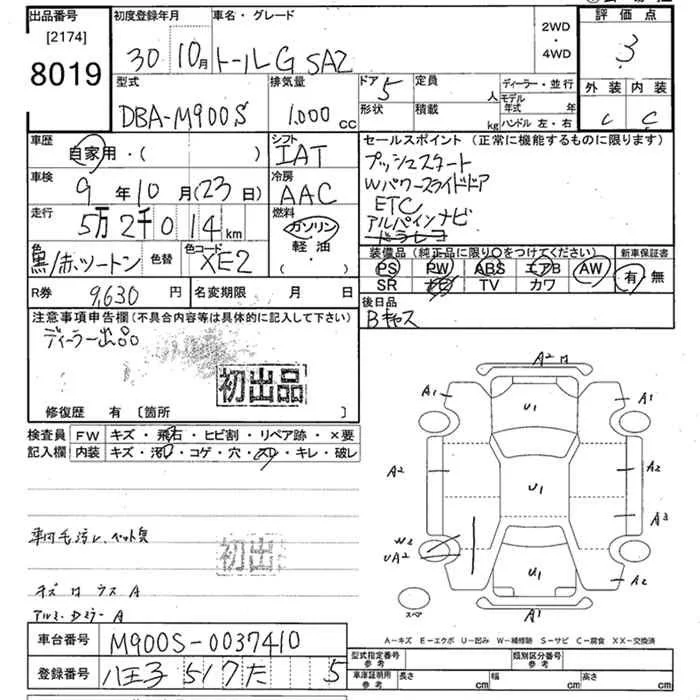 出品番号 初度登録年月 車名・グレード 評価点
[2174]
8019
30 10月 トールG SA2 2WD・4WD 3
型式 排気量 ドア 定員 ディーラー・並行 外装 内装
5 人 モデル年式 年
DBA-M900S 1,000cc 形状 積載 kg ハンドル 左・右 C C
車歴 シフト セールスポイント (正常に機能するものに限ります)
自家用・( ) IAT プッシュスタート
車検 冷房 Wパワースライドドア
9年10月(23日) AAC ETC
走行 燃料 アルパインナビ
5万2千014km ガソリン・軽油・( ) ドラレコ
色 色替 色コード 装備品 (純正品に限り○をつけてください) 新車保証書
黒/赤ツートン XE2 PS PW ABS エアB AW 有・無
SR ナビ TV カワ
R券 9,630円 名変期限 月 日 後日品
Bキャス
注意事項申告欄(不具合内容等は具体的に記入して下さい)
ディーラー出品
初出品
修復歴 有 [箇所 ]
検査員記入欄 FW キズ・飛石・ヒビ割・リペア跡・×要
内装 キズ・汚れ・コゲ・穴・スレ・キレ・破レ
A2
A1 U1 A1
A2 U1 A2
A3
W2
UA2 U1 A2
スペア A1
初出
A-キズ E-エクボ U-凹み W-補修跡 S-サビ C-腐食 XX-交換済
車台番号 M900S-0037410
登録番号 八王子 517 た 5
型式指定番号 参考 類別区分番号 参考
車庫証明用 参考 長さ cm 幅 cm 高さ cm